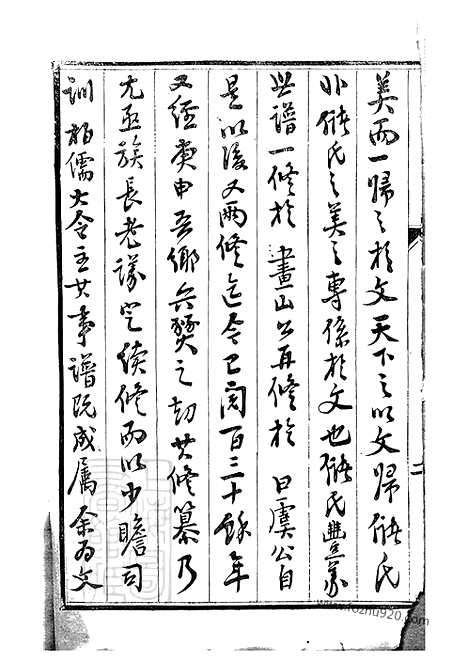 美而一歸之於文天下之以文歸儲氏
非儲氏之美之專係於文也儲氏豐義
世譜一修於 畫山公再修於 曰虞公自
是以後又兩修迄今已閱百三十餘年
又經庚申吾鄉兵燹之劫其修纂乃
尤亟族長老議定續修而以少瞻司
訓柏儒大令主其事譜既成屬余為文
二
www.fozhu920.com